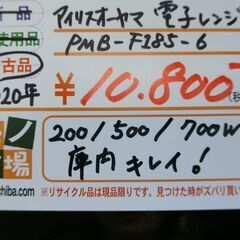 品
アイリスオーヤマ 電子レンジ
使用品
PMB-F185-6
古品
¥10,800
20年
200/500/700W
庫内 キレイ!
市場
chiba.com
※リサイクル品は現品限りです。見つけた時がズバリ買い